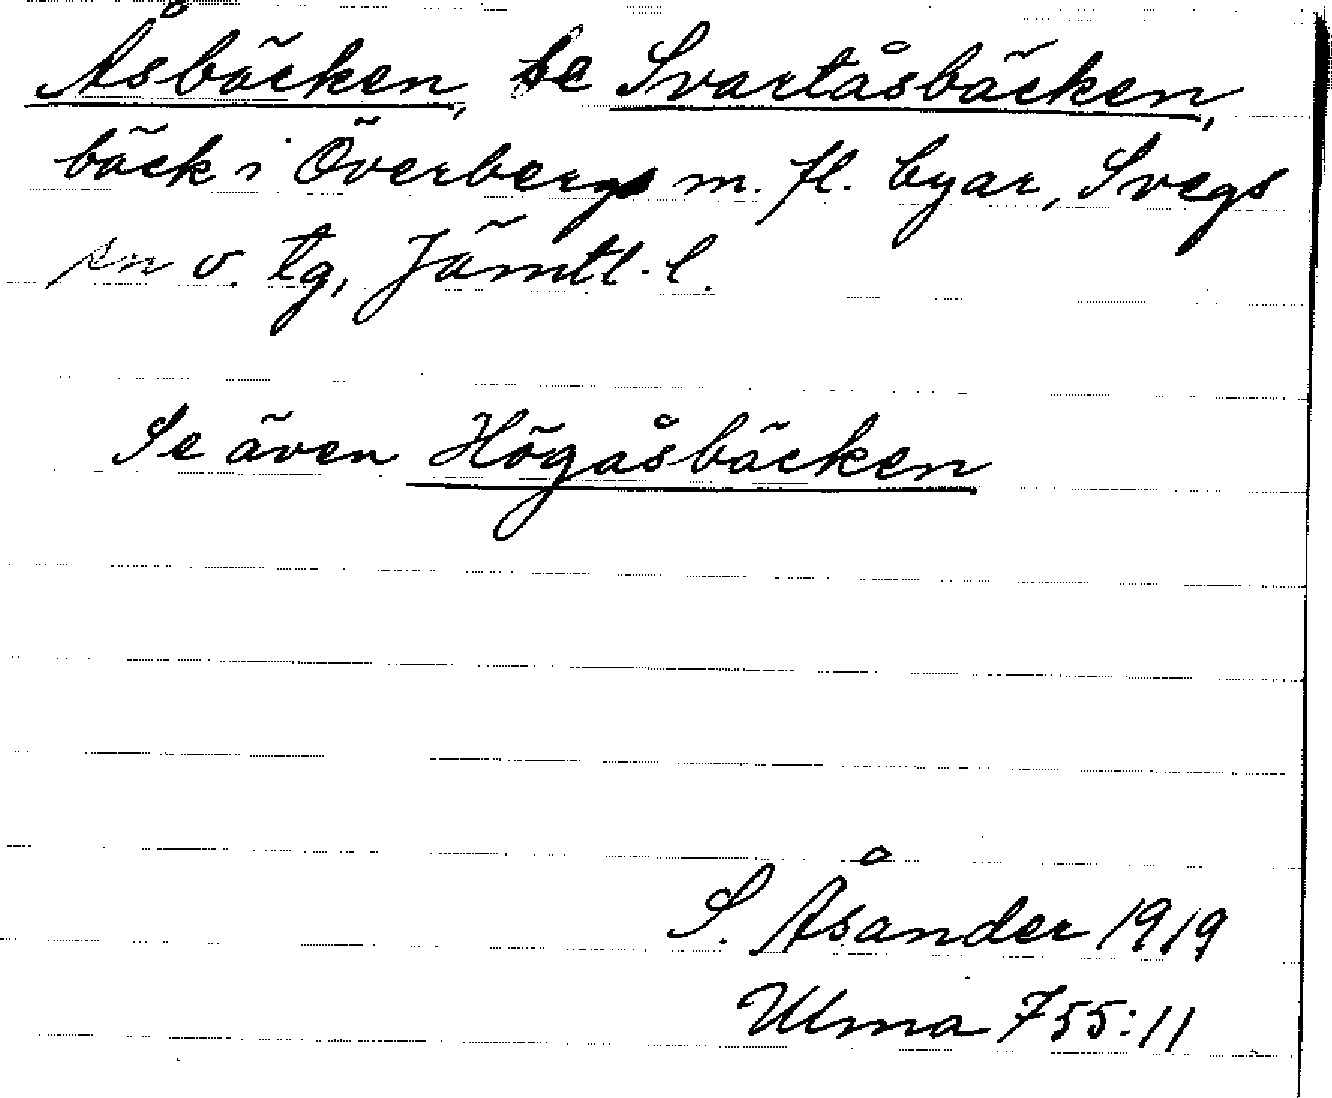 Åsbäcken, se Svartåsbäcken,
bäck i Överbergs m. fl. byar, Svegs
sn v. tg, Jämtl. l.
Se även Högåsbäcken
S. Åsander 1919
Ulma 755:11